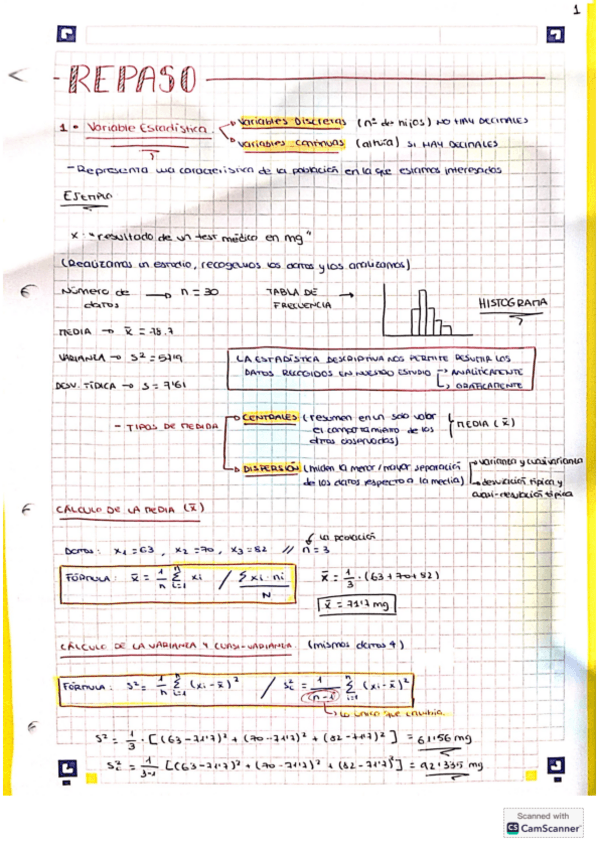 1
REPASO
1. Variable Estadística. → Variables Discretas (nº de hijos) NO HAY DECIMALES
→ Variables continuas (altura) SI HAY DECIMALES
- Representa una característica de la población en la que estamos interesados
EJEMPLO
X: "resultado de un test médico en mg"
(Realizamos un estudio, recogemos los datos y los analizamos)
Número de datos → n = 30
TABLA DE FRECUENCIA →
HISTOGRAMA
MEDIA → x̄ = 78.7
VARIANZA → S² =
DESV. TÍPICA → S = 7'61
LA ESTADÍSTICA DESCRIPTIVA NOS PERMITE RESUMIR LOS
DATOS RECOGIDOS EN NUESTRO ESTUDIO → ANALÍTICAMENTE
→ GRÁFICAMENTE
- TIPOS DE MEDIDA
→ CENTRALES (resumen en un solo valor
el comportamiento de los
datos observados)
MEDIA (x̄)
→ DISPERSIÓN (miden la menor/mayor separación
de los datos respecto a la media)
→ varianza y cuasivarianza
→ desviación típica y
cuasi-desviación típica
CÁLCULO DE LA MEDIA (x̄)
la población
Datos: x1 = 63, x2 = 70, x3 = 82 // n = 3
FÓRMULA: x̄ = 1/n Σ i=1 n xi / Σ xi · ni / N
x̄ = 1/3 · (63 + 70 + 82)
x̄ = 71'7 mg
CÁLCULO DE LA VARIANZA Y CUASI-VARIANZA. (mismos datos ↑)
FÓRMULA: S² = 1/n Σ i=1 n (xi - x̄)² / Sc² = 1/(n-1) Σ i=1 n (xi - x̄)²
→ lo único que cambia.
S² = 1/3 · [(63-71'7)² + (70-71'7)² + (82-71'7)²] = 61'56 mg
Sc² = 1/3-1 [(63-71'7)² + (70-71'7)² + (82-71'7)²] = 92'335 mg
Scanned with
CS CamScanner